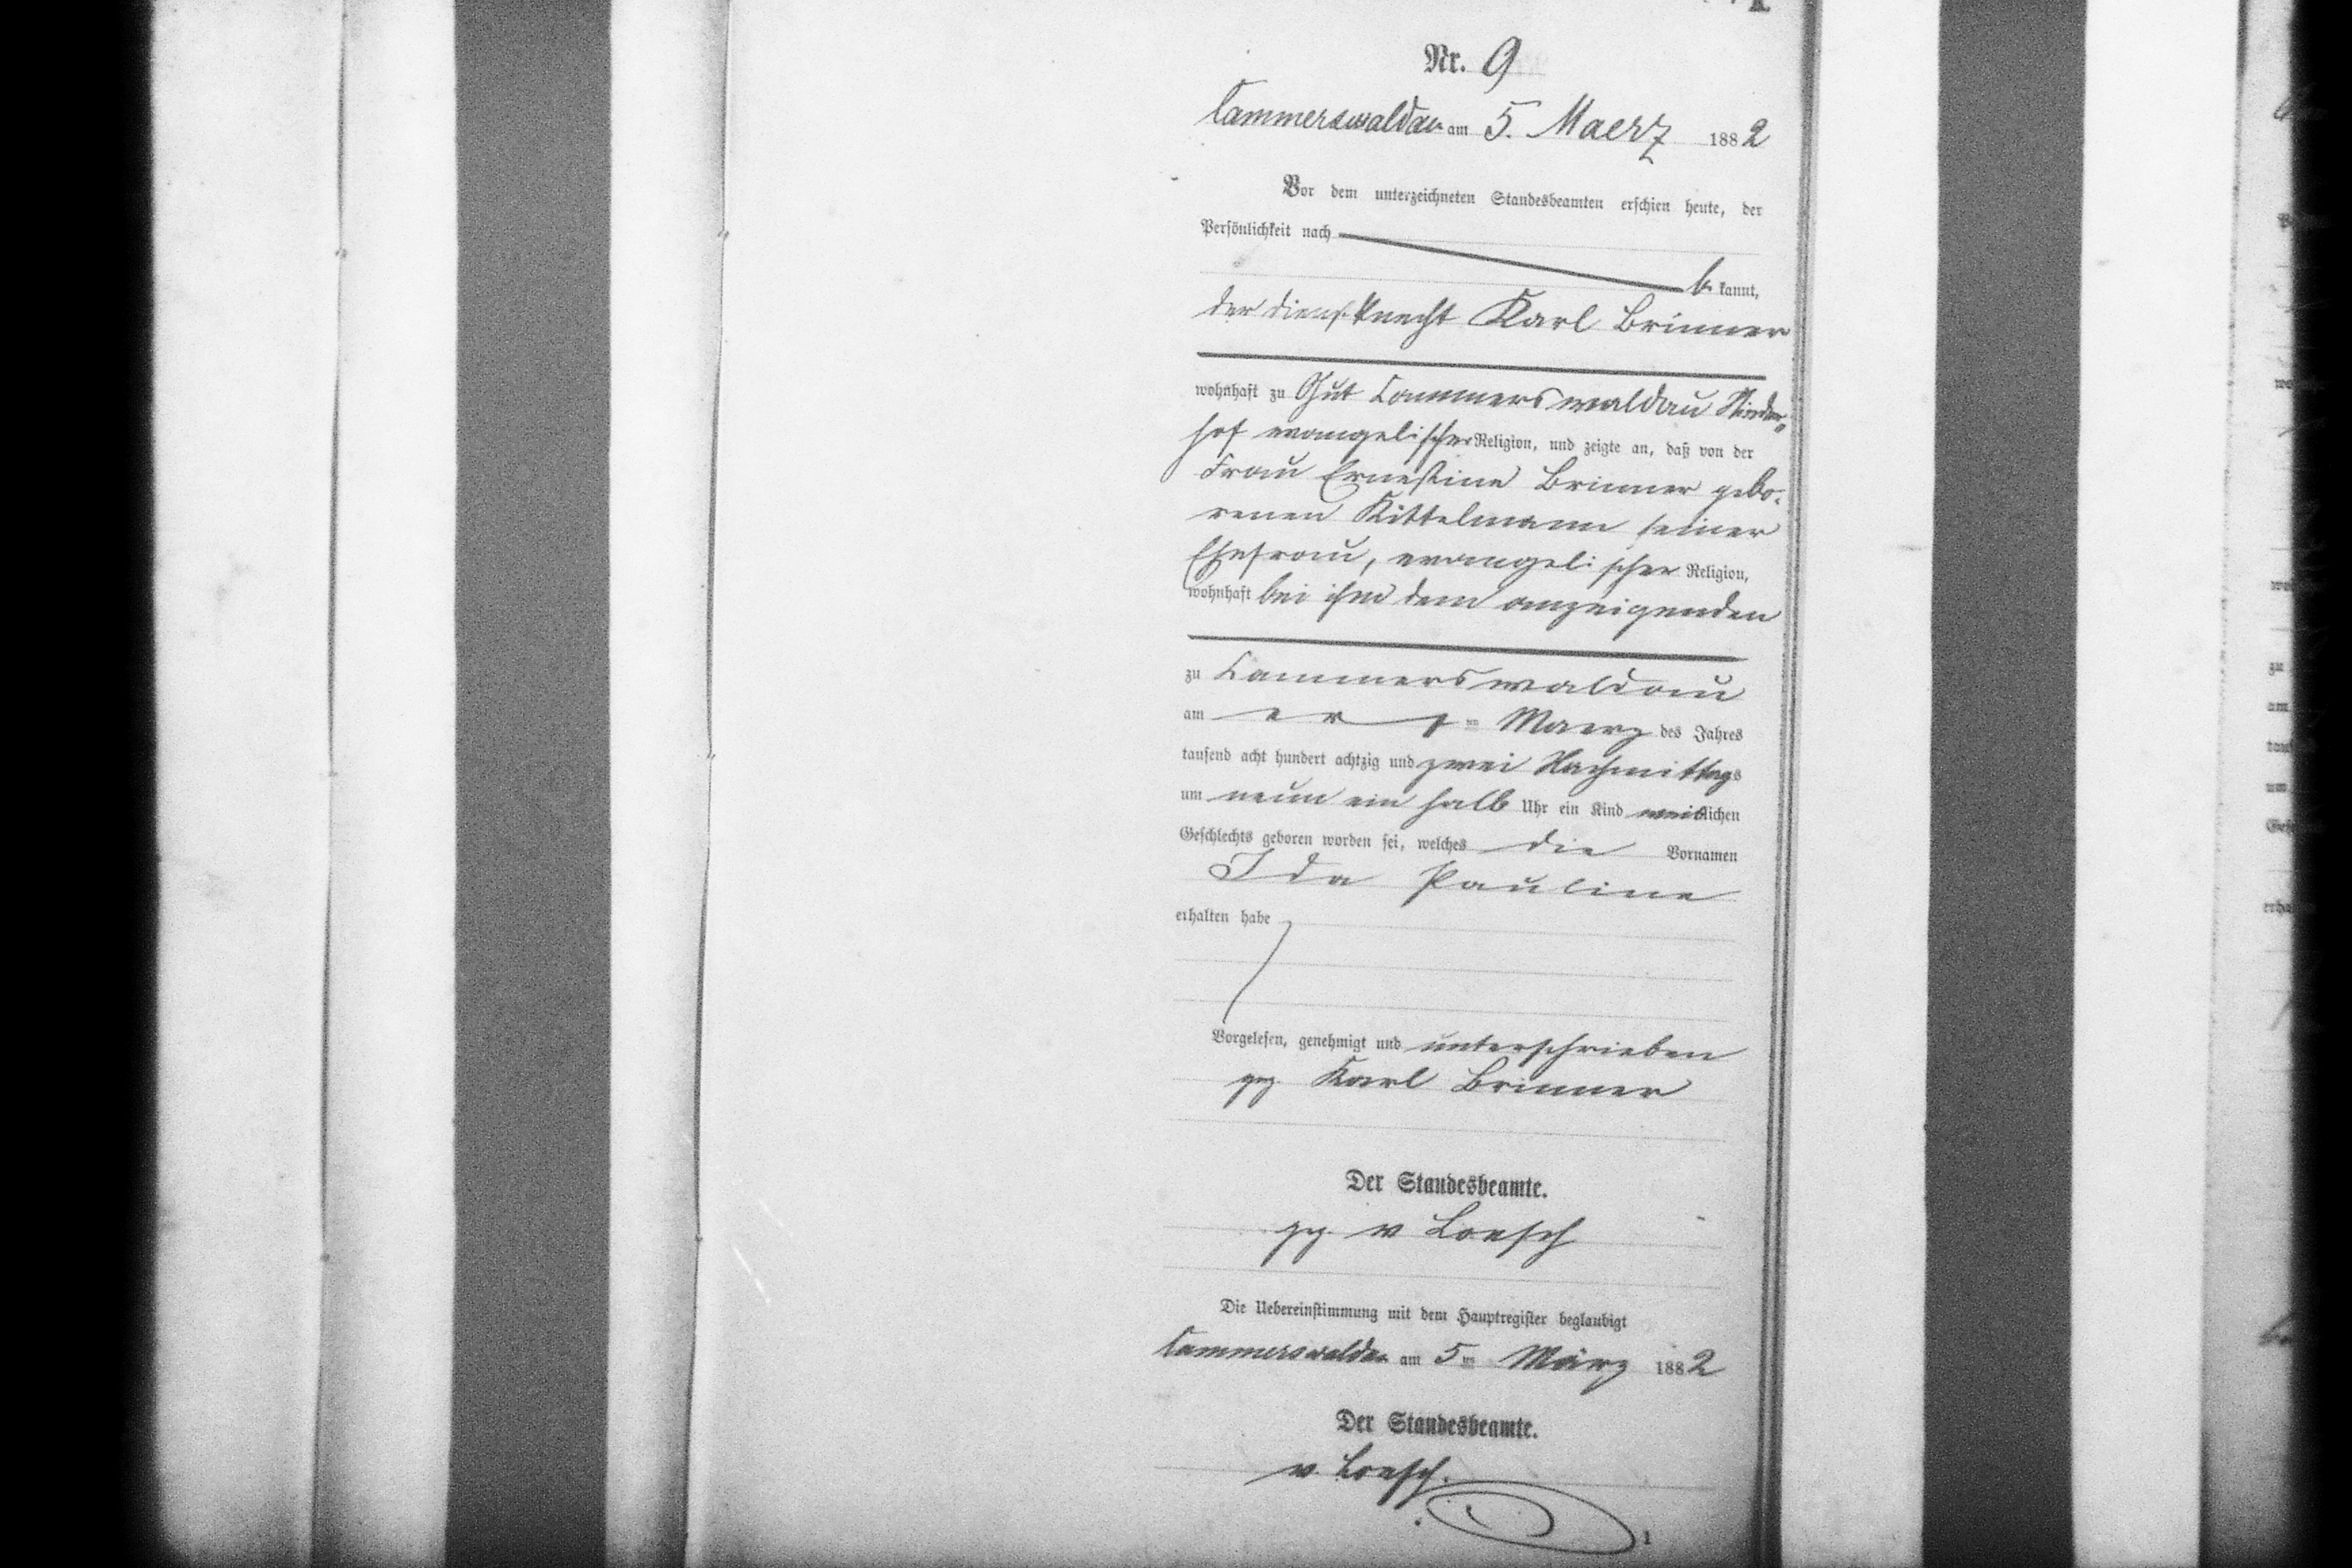 Nr. 9
Cammerswaldau am 5. Maerz 1882
Vor dem unterzeichneten Standesbeamten erschien heute, der
Persönlichkeit nach
be kannt,
der Dienstknecht Karl Brinner
wohnhaft zu Gut Cammerswaldau Nieder„
hof evangelischer Religion, und zeigte an, daß von der
Frau Ernestine Brinner gebo-
renen Kittelmann seiner
Ehefrau, evangelischer Religion,
wohnhaft bei ihm dem anzeigenden
zu Cammerswaldau
am ersten Maerz des Jahres
tausend acht hundert achtzig und zwei Nachmittags
um neun ein halb Uhr ein Kind weiblichen
Geschlechts geboren worden sei, welches die Vornamen
Ida Pauline
erhalten habe
Vorgelesen, genehmigt und unterschrieben
gez. Karl Brinner
Der Standesbeamte.
gez. v Loesch
Die Uebereinstimmung mit dem Hauptregister beglaubigt
Cammerswaldau am 5ten März 1882
Der Standesbeamte.
v. Loesch.
1